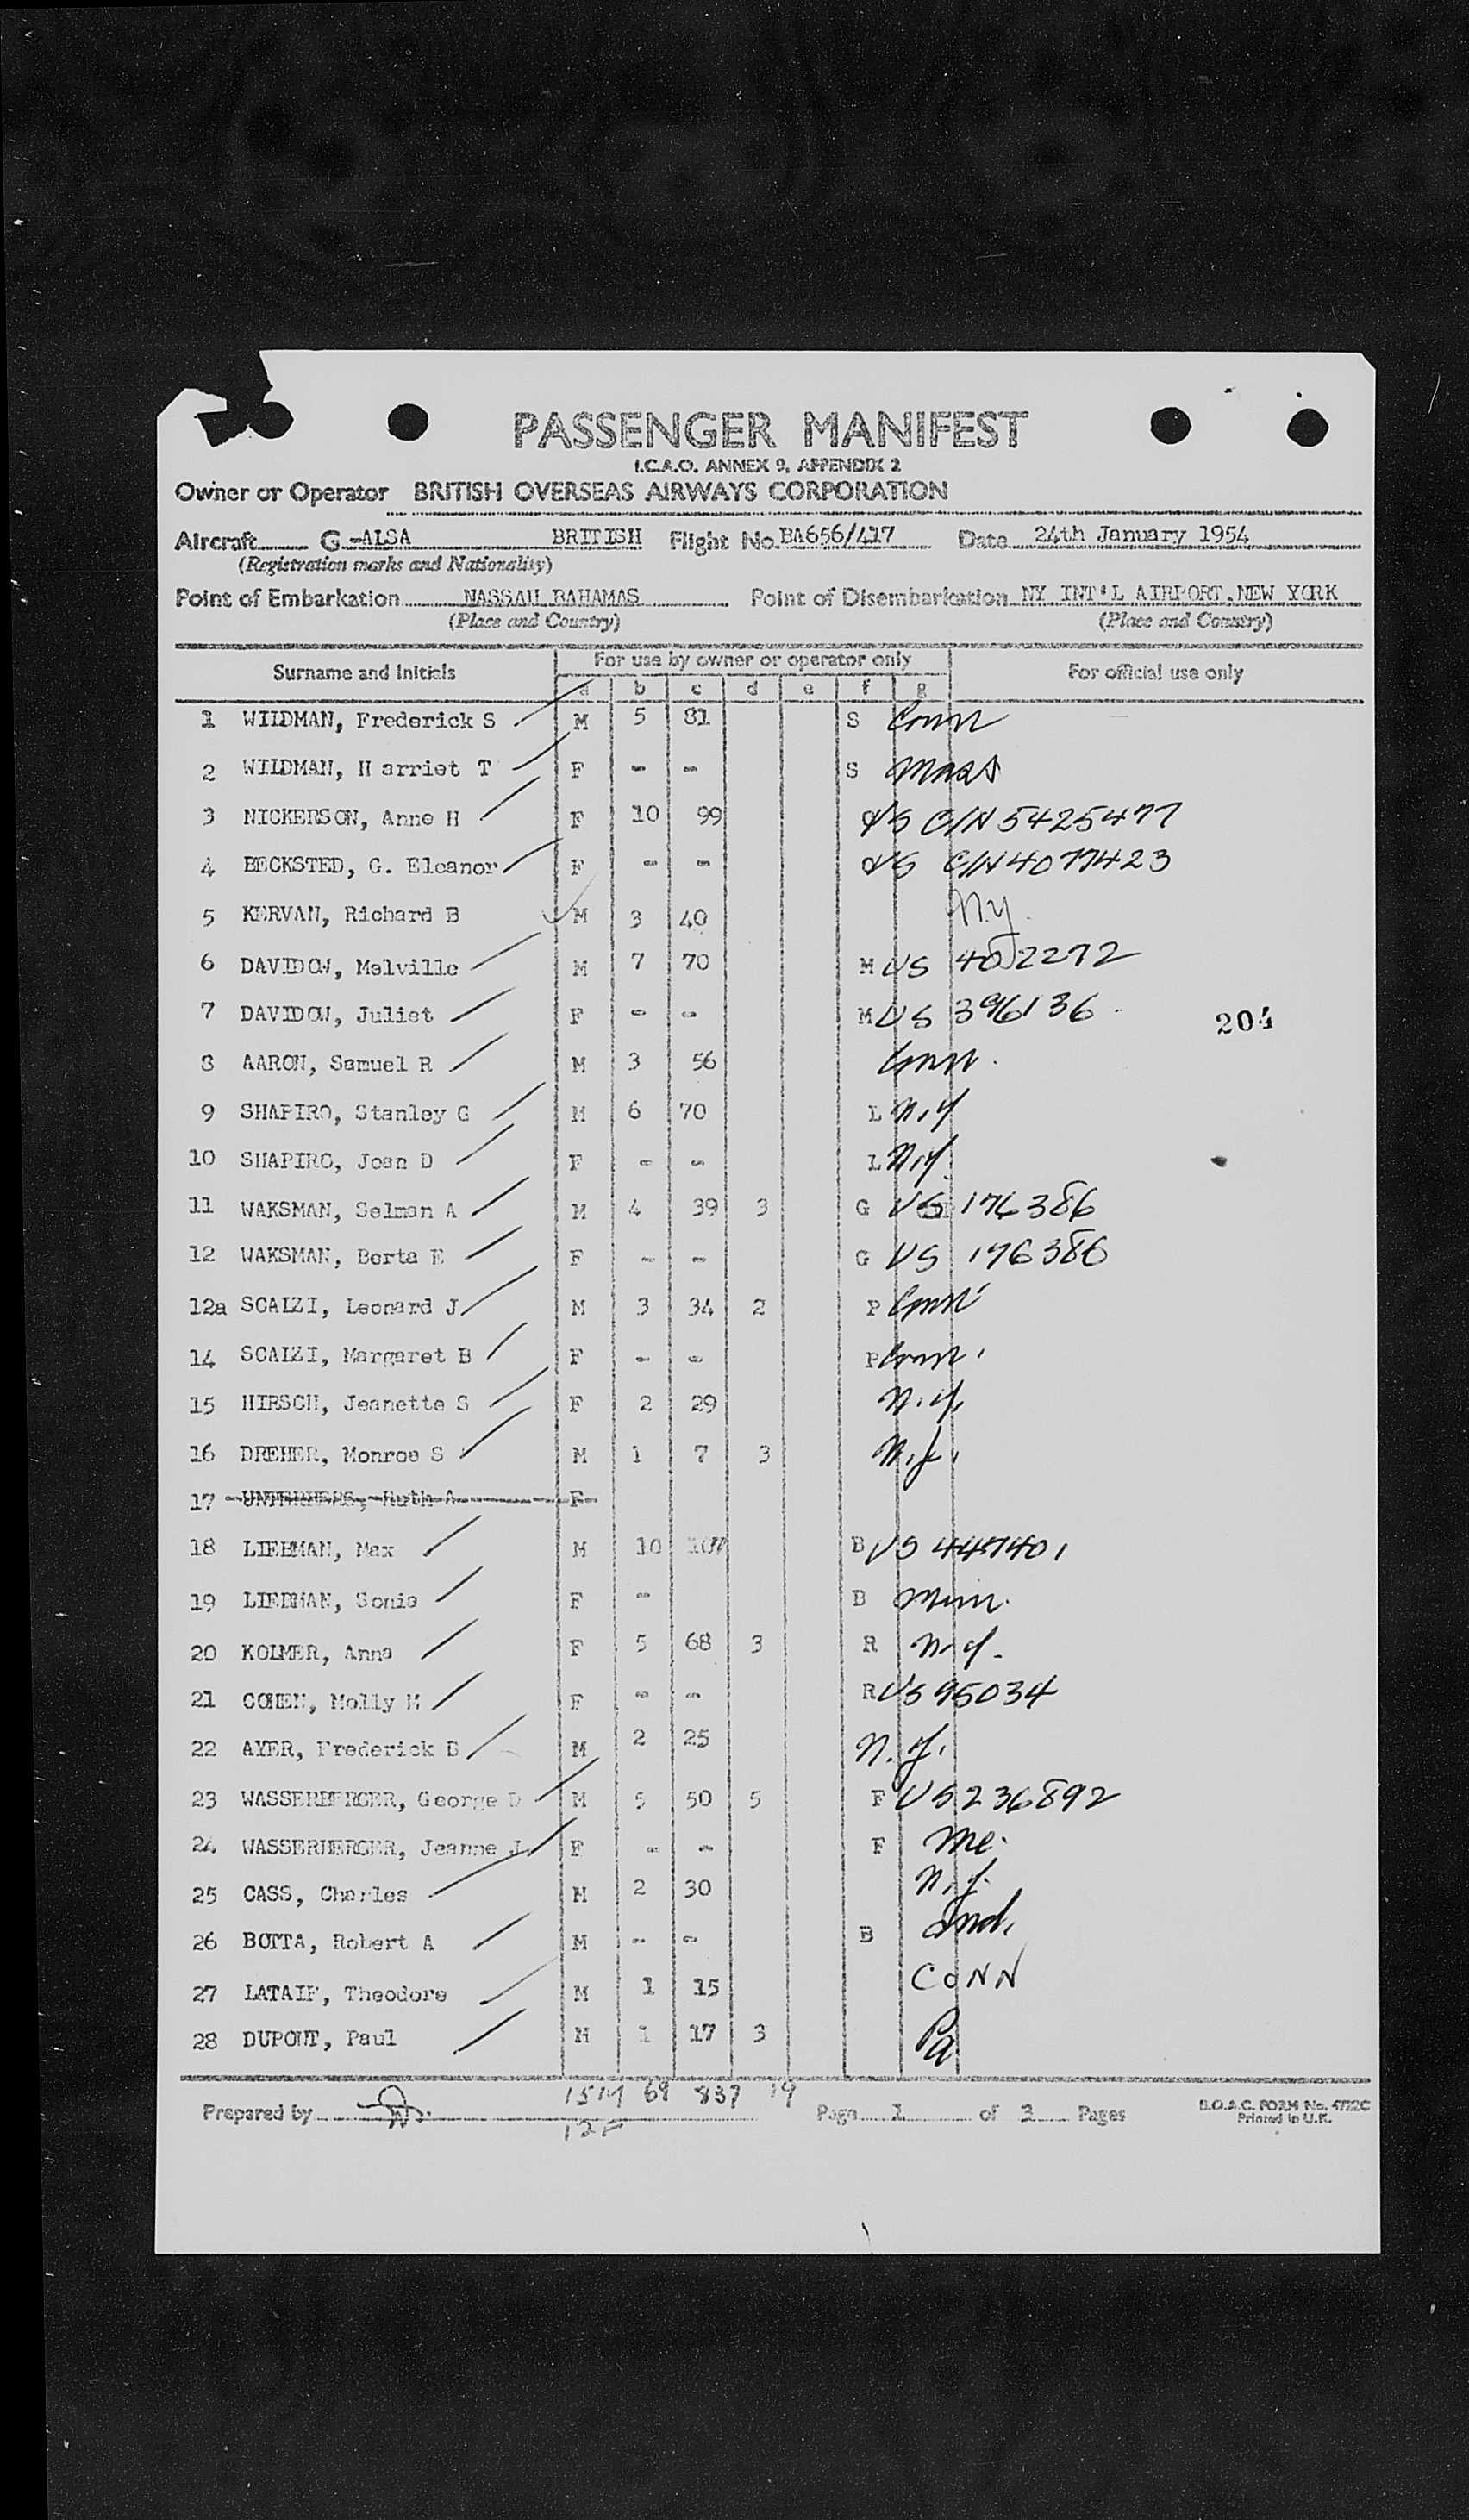 PASSENGER MANIFEST
I.C.A.O. ANNEX 9, APPENDIX 2
Owner or Operator BRITISH OVERSEAS AIRWAYS CORPORATION
Aircraft G-ALSA BRITISH Flight No. BA656/417 Date 24th January 1954
(Registration marks and Nationality)
Point of Embarkation NASSAU BAHAMAS Point of Disembarkation NY INT'L AIRPORT.NEW YORK
(Place and Country) (Place and Country)
Surname and Initials For use by owner or operator only For official use only
a b c d e f g
1 WILDMAN, Frederick S M 5 81 S Conn
2 WILDMAN, H arriet T F - - S Mass
3 NICKERSON, Anne H F 10 99 US C/N 5425477
4 BECKSTED, G. Eleanor F - - US C/N 4077423
5 KERVAN, Richard B M 3 40 N.Y.
6 DAVIDOW, Melville M 7 70 M US 402272
7 DAVIDOW, Juliet F - - M US 396136
204
8 AARON, Samuel R M 3 56 Conn.
9 SHAPIRO, Stanley G M 6 70 L N.Y
10 SHAPIRO, Joan D F - - L N.Y.
11 WAKSMAN, Selman A M 4 39 3 G US 176386
12 WAKSMAN, Berta E F - - G US 176386
12a SCALZI, Leonard J M 3 34 2 P Conn
14 SCALZI, Margaret B F - - P Conn.
15 HIRSCH, Jeanette S F 2 29 N.Y.
16 DREHER, Monroe S M 1 7 3 N.J.
17 Ruth A F
18 LIEBMAN, Max M 10 107 B US 447401
19 LIEBMAN, Sonia F - B Minn.
20 KOLMER, Anna F 5 68 3 R N.Y.
21 COHEN, Molly M F - - R US 95034
22 AYER, Frederick B M 2 25 N.J.
23 WASSERBERGER, George D M 5 50 5 F US 236892
24 WASSERBERGER, Jeanne J F - - F Me.
25 CASS, Charles M 2 30 N.J.
26 BOTTA, Robert A M - - B Ind.
27 LATAIF, Theodore M 1 15 CONN
28 DUPONT, Paul M 1 17 3 Pa
15M 69 837 19
Prepared by Page 1 of 2 Pages B.O.A.C. FORM No.
12F Printed in U.K.